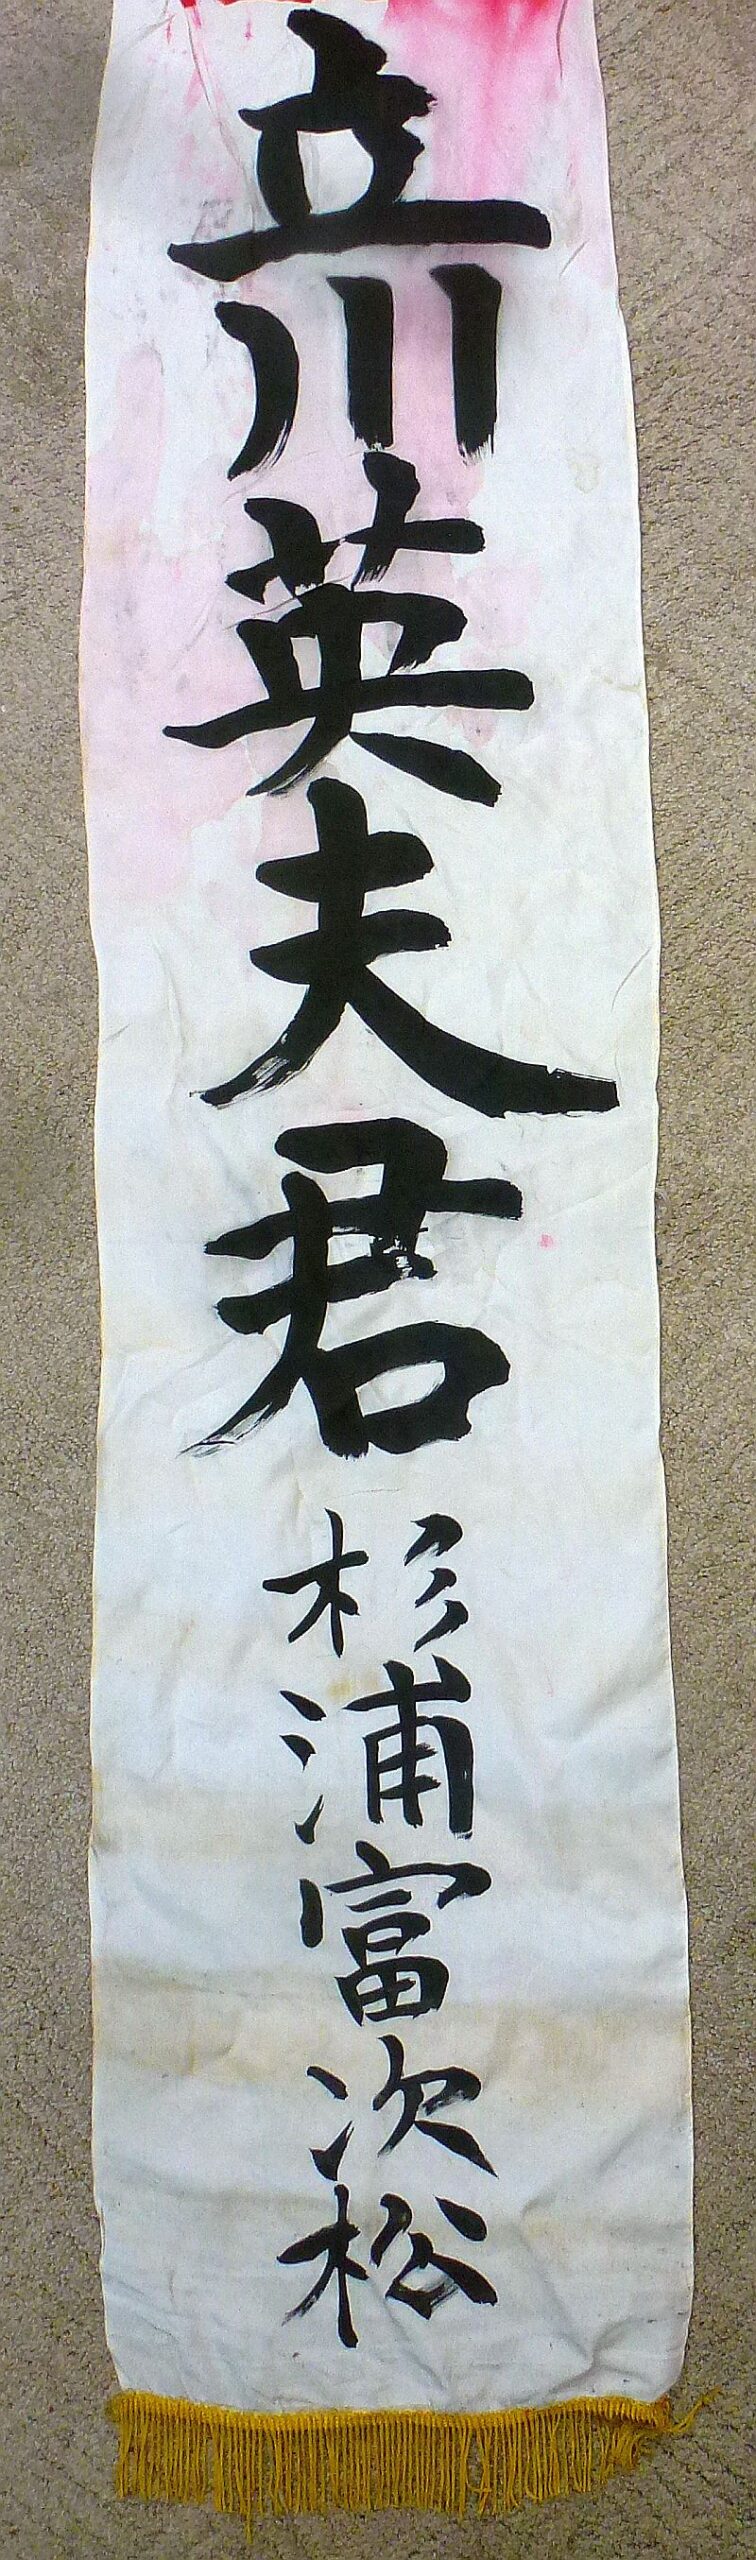 立川英夫君
杉浦富次松